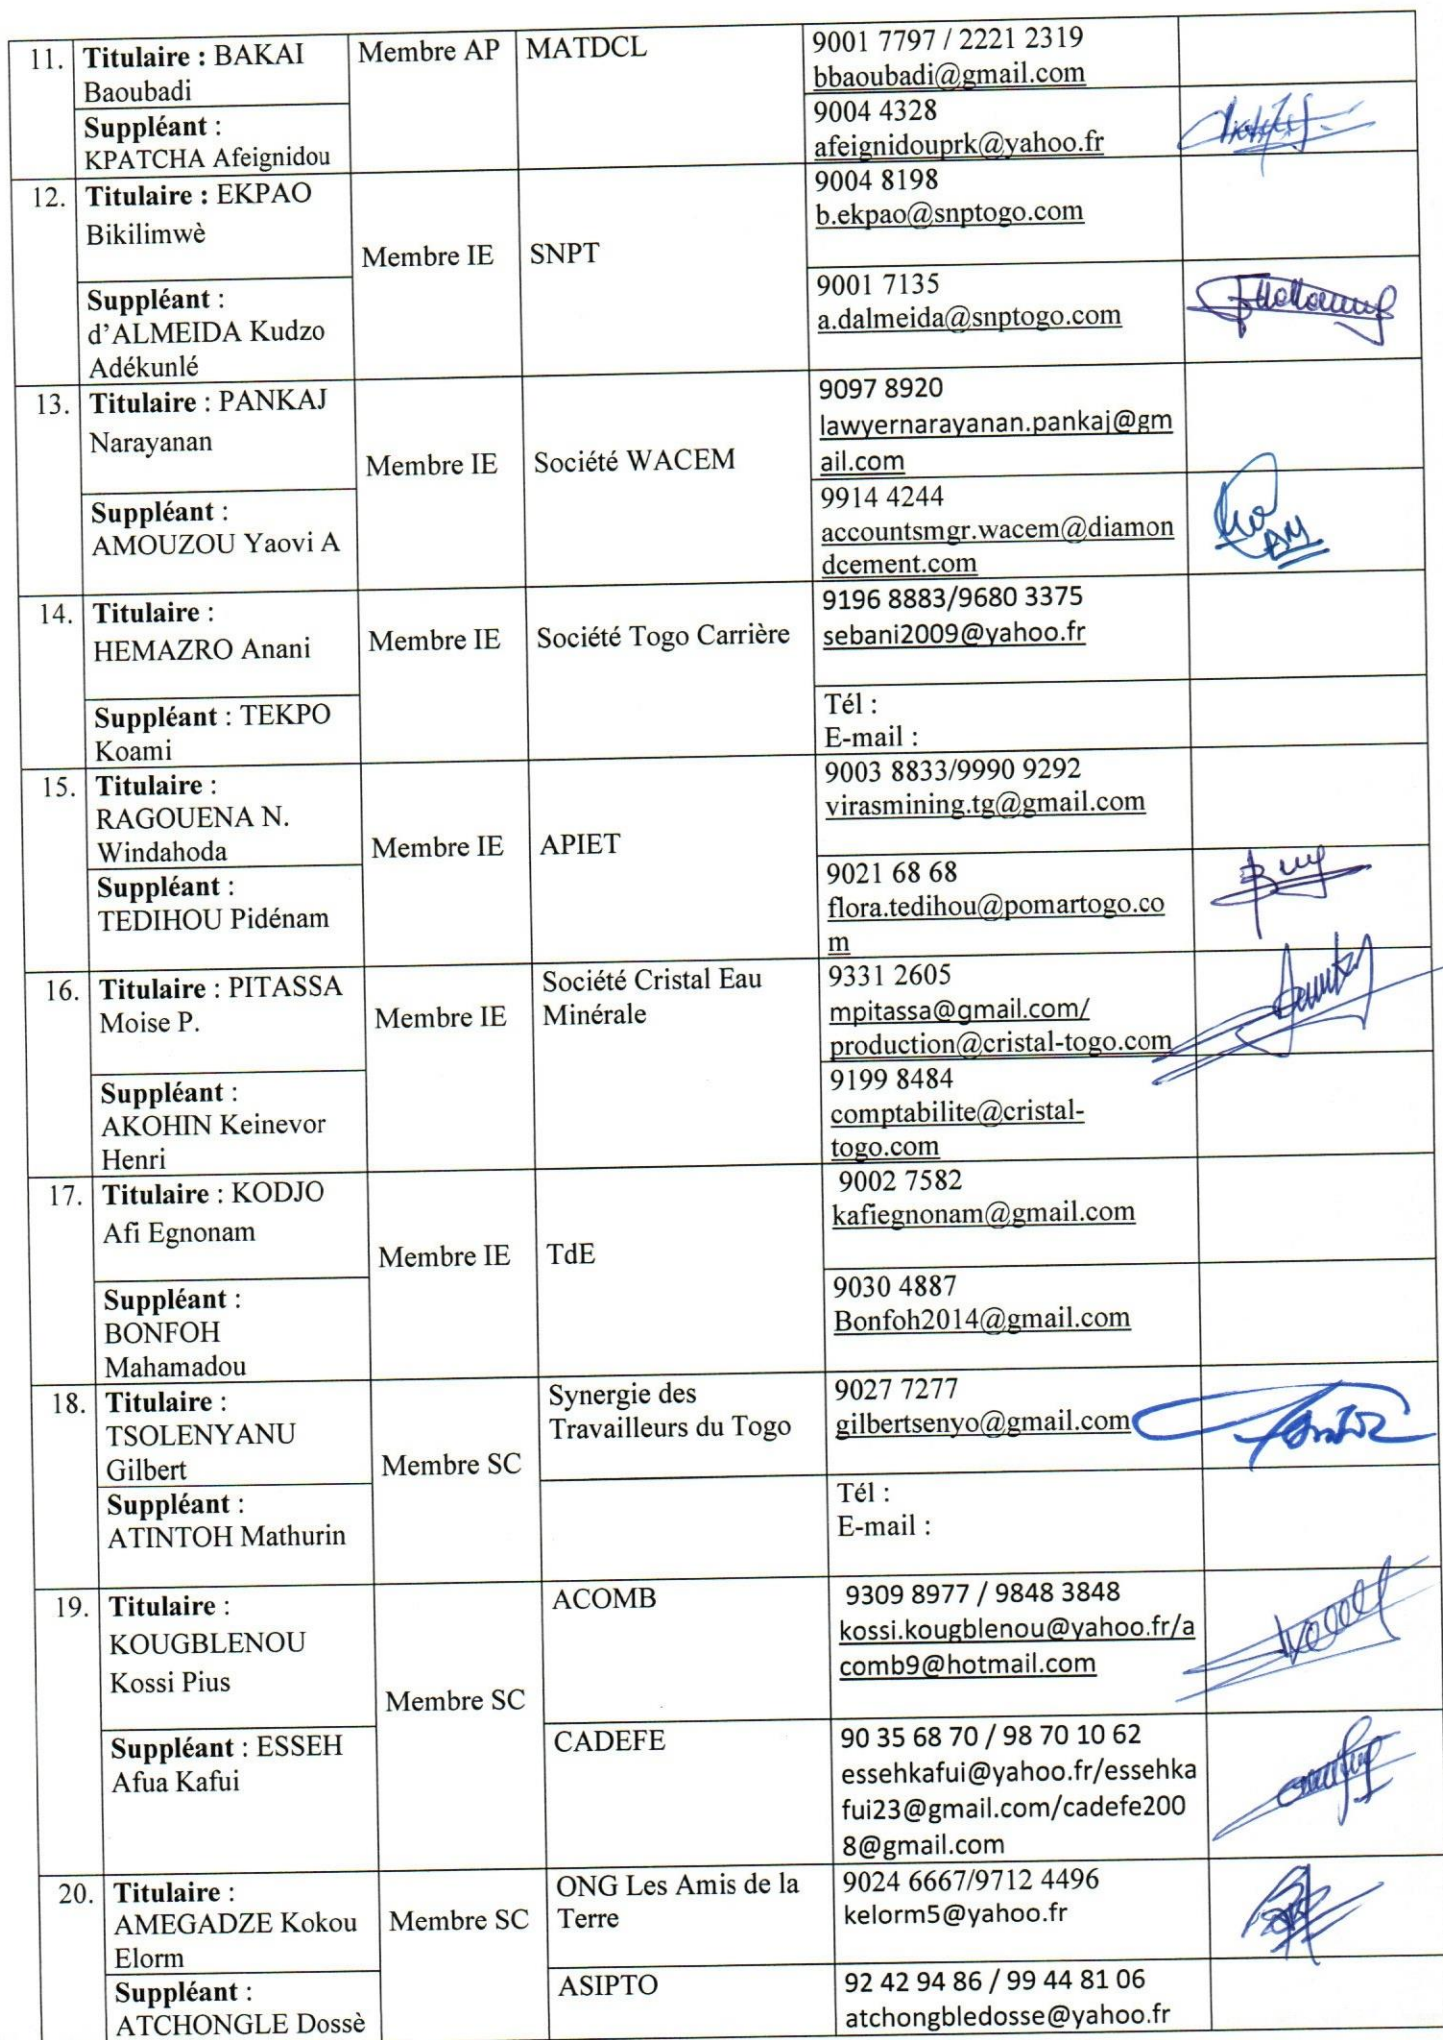 11. Titulaire : BAKAI
Baoubadi
Membre AP
MATDCL
9001 7797 / 2221 2319
bbaoubadi@gmail.com
Suppléant :
KPATCHA Afeignidou
9004 4328
afeignidouprk@yahoo.fr
12. Titulaire : EKPAO
Bikilimwè
Membre IE
SNPT
9004 8198
b.ekpao@snptogo.com
Suppléant :
d'ALMEIDA Kudzo
Adékunlé
9001 7135
a.dalmeida@snptogo.com
13. Titulaire : PANKAJ
Narayanan
Membre IE
Société WACEM
9097 8920
lawyernarayanan.pankaj@gm
ail.com
Suppléant :
AMOUZOU Yaovi A
9914 4244
accountsmgr.wacem@diamon
dcement.com
14. Titulaire :
HEMAZRO Anani
Membre IE
Société Togo Carrière
9196 8883/9680 3375
sebani2009@yahoo.fr
Suppléant : TEKPO
Koami
Tél :
E-mail :
15. Titulaire :
RAGOUENA N.
Windahoda
Membre IE
APIET
9003 8833/9990 9292
virasmining.tg@gmail.com
Suppléant :
TEDIHOU Pidénam
9021 68 68
flora.tedihou@pomartogo.co
m
16. Titulaire : PITASSA
Moise P.
Membre IE
Société Cristal Eau
Minérale
9331 2605
mpitassa@gmail.com/
production@cristal-togo.com
Suppléant :
AKOHIN Keinevor
Henri
9199 8484
comptabilite@cristal-
togo.com
17. Titulaire : KODJO
Afi Egnonam
Membre IE
TdE
9002 7582
kafiegnonam@gmail.com
Suppléant :
BONFOH
Mahamadou
9030 4887
Bonfoh2014@gmail.com
18. Titulaire :
TSOLENYANU
Gilbert
Membre SC
Synergie des
Travailleurs du Togo
9027 7277
gilbertsenyo@gmail.com
Suppléant :
ATINTOH Mathurin
Tél :
E-mail :
19. Titulaire :
KOUGBLENOU
Kossi Pius
Membre SC
ACOMB
9309 8977 / 9848 3848
kossi.kougblenou@yahoo.fr/a
comb9@hotmail.com
Suppléant : ESSEH
Afua Kafui
CADEFE
90 35 68 70 / 98 70 10 62
essehkafui@yahoo.fr/essehka
fui23@gmail.com/cadefe200
8@gmail.com
20. Titulaire :
AMEGADZE Kokou
Elorm
Membre SC
ONG Les Amis de la
Terre
9024 6667/9712 4496
kelorm5@yahoo.fr
Suppléant :
ATCHONGLE Dossè
ASIPTO
92 42 94 86 / 99 44 81 06
atchongbledosse@yahoo.fr